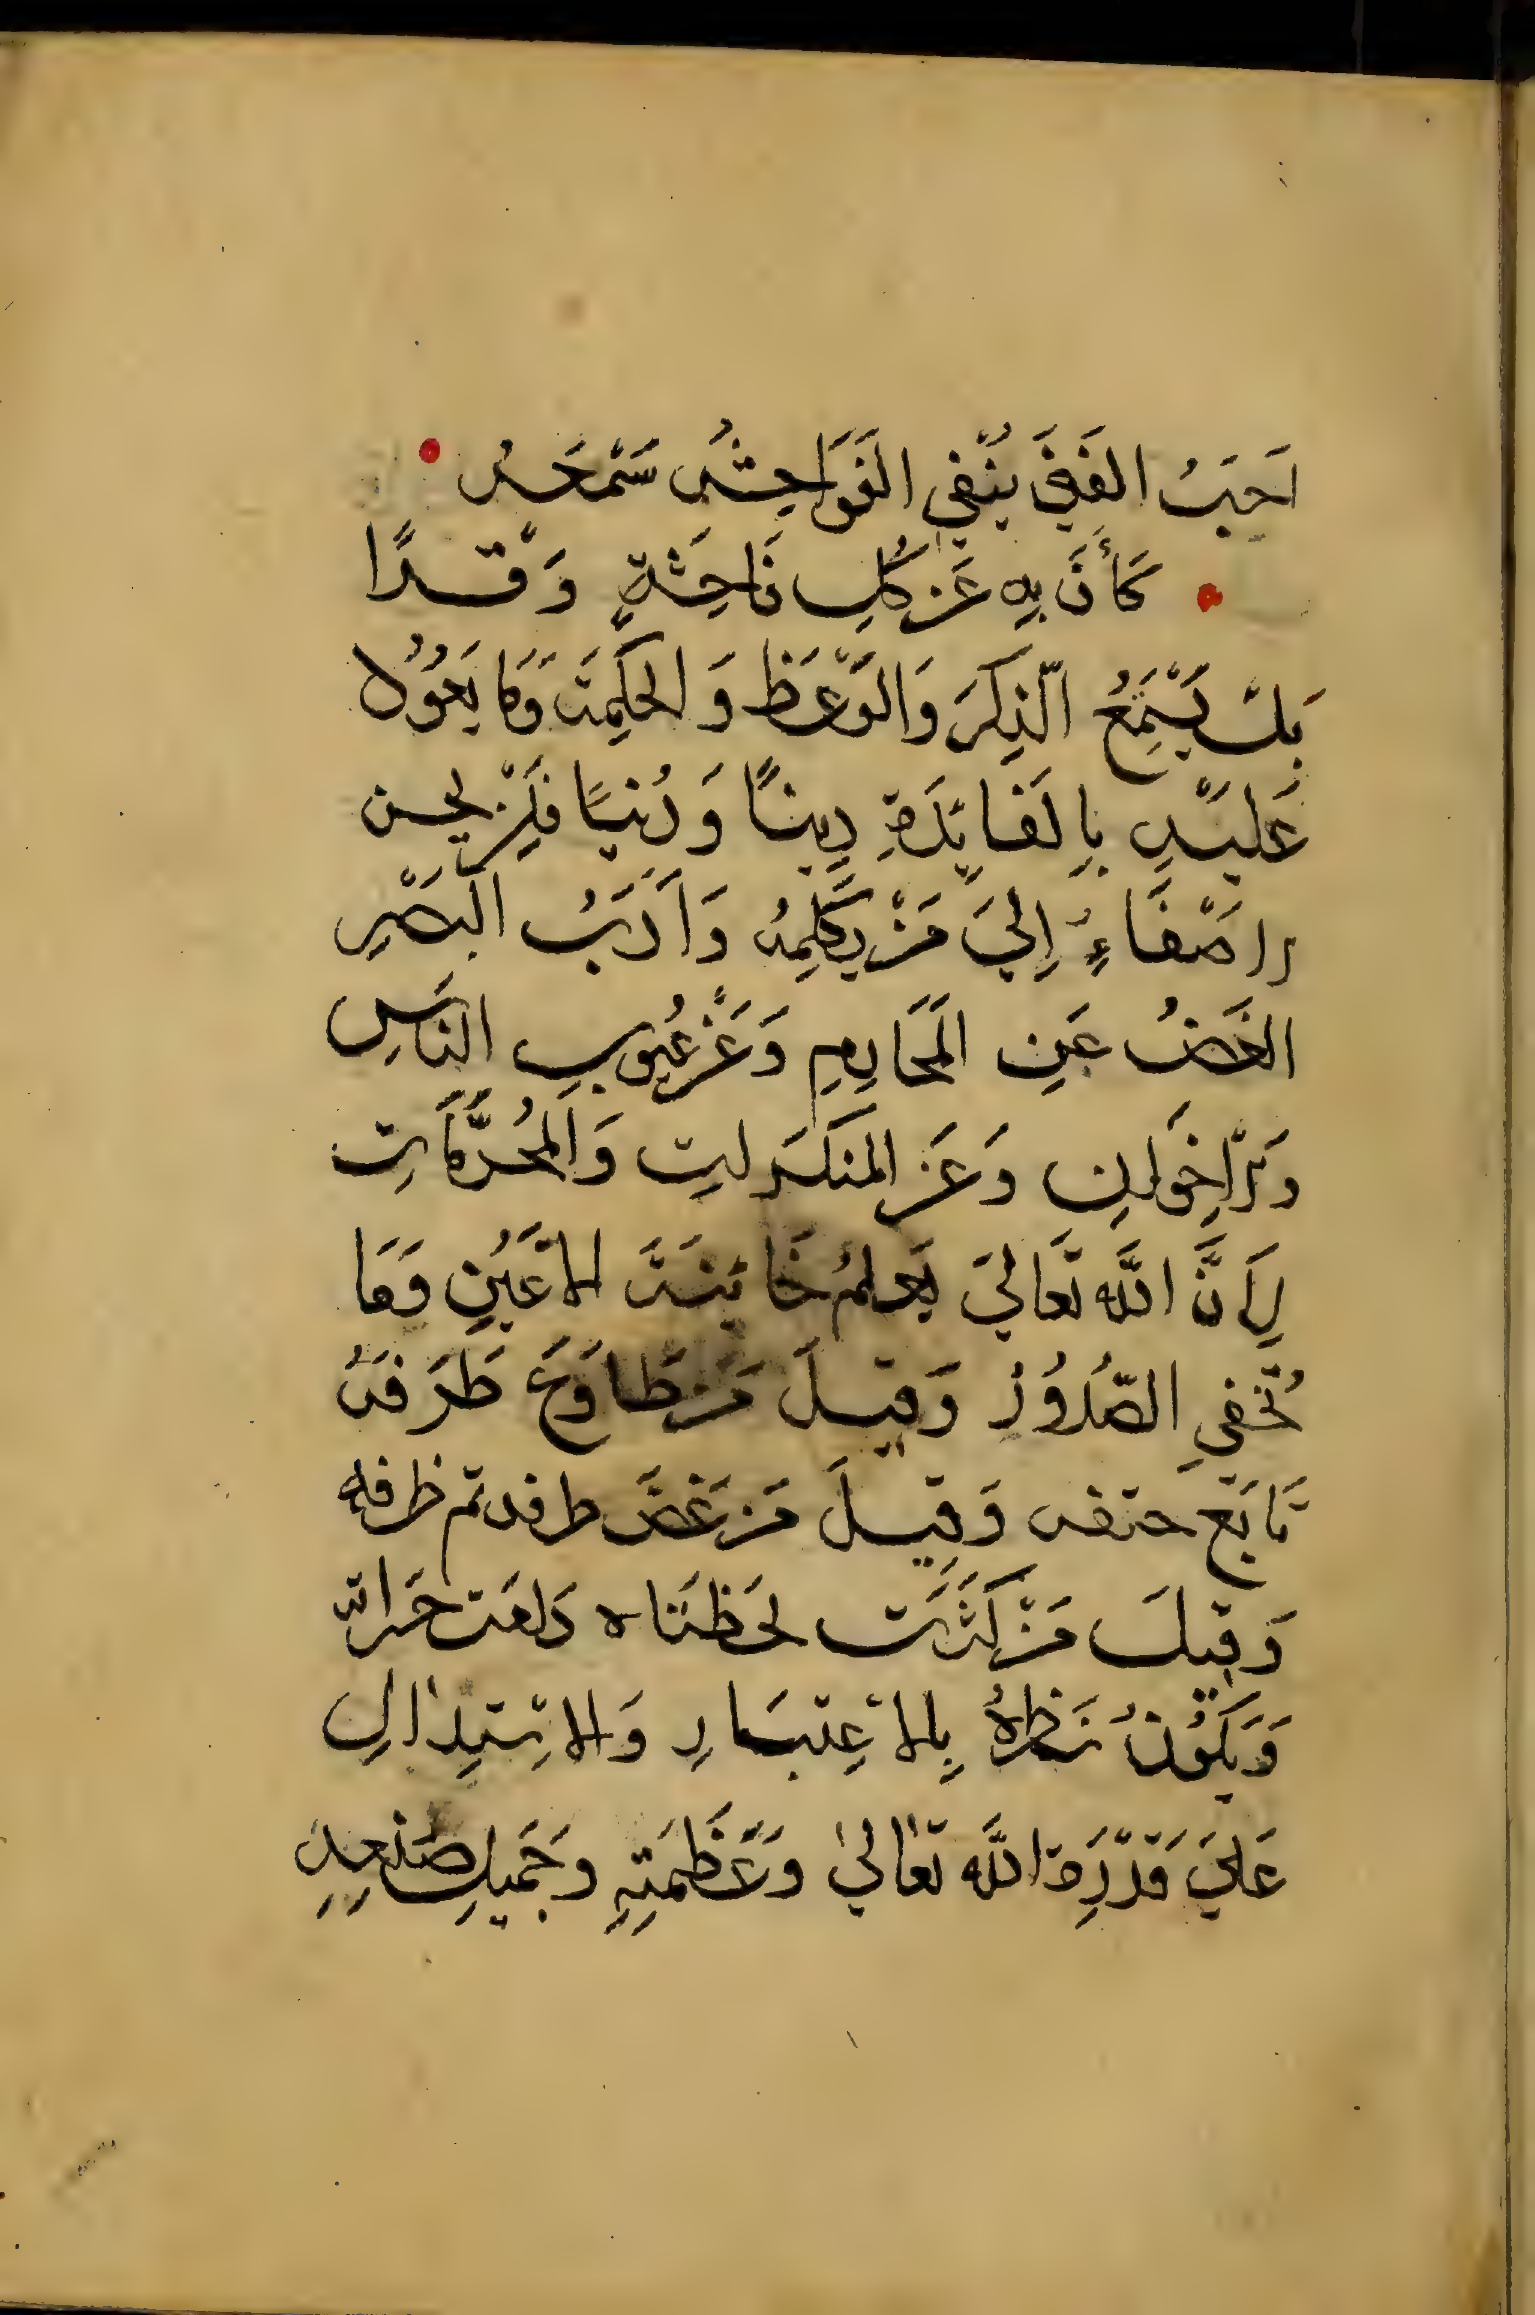 اَحَبُ الفَتَي يَنْفِي الفَوَاحِشُ سَمْعَهُ
كَأَنَّ بِهِ عَن كُلِ فَاحِشَةٍ وَقْدًا
بَلْ يَسْتَمِعُ الذِّكَرَ وَالوَعْظَ وَ الحِكْمَةَ وَمَا يَعُوُدُ
عَلَيْهِ بِالفَايِدَةِ دِينًا وَدُنيًا فَلِن يحسن
اصْغَاءٍ اِلَيَ مَنْ يُكَلِمُهُ وَاَدَبُ البَصْرِ
الغَضُ عَنِ المَحَارِمِ وَعَنْ عُيُوبِ النَاسِ
وَالاِخوَانِ وَعَن المنكَراتِ وَالمُحَرَّمَاتِ
لِاَنَّ اللَّه تَعَاليَ يَعلمُ خَائِنَةَ الاَعْيُنِ وَمَا
تُخفِي الصُّدُوُرُ وَقِيلَ مَن طَاوَعَ طَرَفَهُ
تَابَعَ حتفه وَقِيلَ مَن غَضَّ طرفه تم ظرفه
وَقِيلَ مَنْ كَثُرَت لحَظَتَاه دَامَت حَسَراته
وَيَكُوْنُ نَظَرُهُ بِالاعتِبَارِ وَالاسْتِدْلَالِ
عَليَ قَدْرَةِ اللَّه تَعَاليٰ وَعَظَمَتِهِ وَجَمِيلِ صَنعِهِ